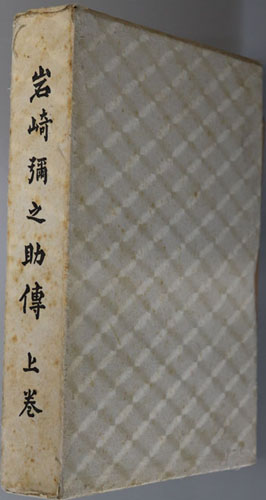 岩崎彌之助傳 上卷